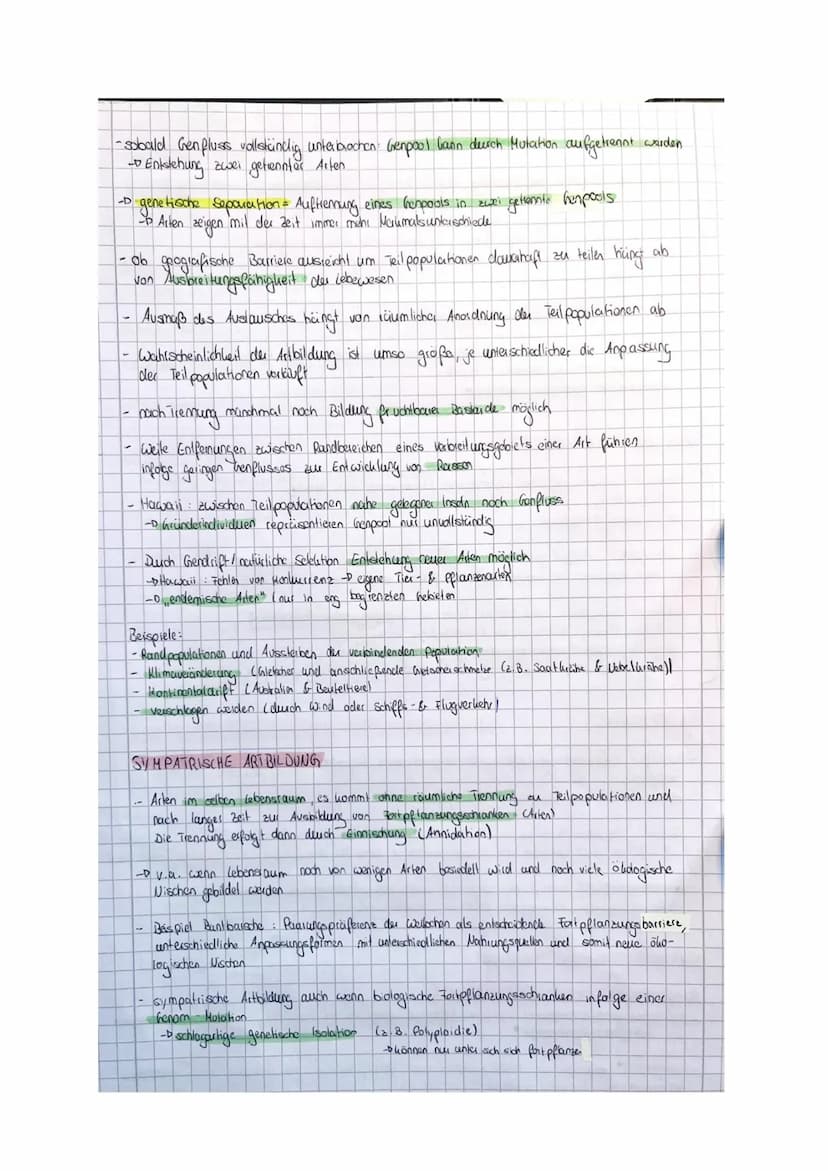 - sobald Genfluss vollständig unterbrochen Genpool kann durch Mutation aufgetrennt werden
→ Entstehung zwei getennter Arten
→ genetische Separation = Auftrennung eines Genpools in zwei getrennte Genpools
→ Arten zeigen mit der Zeit immer mehr Merkmalsunterschiede
- Ob geografische Barriere ausreicht um Teilpopulationen dauerhaft zu teilen hängt ab
von Ausbreitungsfähigkeit der Lebewesen
- Ausmaß des Austausches hängt von räumlicher Anordnung der Teilpopulationen ab
- Wahrscheinlichkeit der Artbildung ist umso größer, je unterschiedlicher die Anpassung
der Teilpopulationen verläuft
- nach Trennung manchmal noch Bildung fruchtbarer Bastarde möglich
- Weite Entfernungen zwischen Randbereichen eines Verbreitungsgebiets einer Art führen
infolge geringen Genflusses zur Entwicklung von Rassen
- Hawaii: zwischen Teilpopulationen nahe gelegener Inseln noch Genfluss
→ Gründerindividuen repräsentieren Genpool nur unvollständig
- Duch Gendrift / natürliche Selektion Entstehung neuer Arten möglich
→ Hawaii: Fehlen von Konkurrenz → eigene Tier- & Pflanzenarten
→ "endemische Arten" (nur in eng begrenzten Gebieten
Beispiele:
- Randpopulationen und Aussterben der verbindenden Population
- Klimaveränderung (Gletscher und anschließende Gletscherschmelze (z.B. Saatkrähe & Nebelkrähe))
- Kontinentaldrift (Australien & Beuteltiere)
- verschlagen werden (durch Wind oder Schiffs- & Flugverkehr)
SYMPATRISCHE ARTBILDUNG
- Arten im selben Lebensraum, es kommt ohne räumliche Trennung zu Teilpopulationen und
nach langer Zeit zur Ausbildung von Fortpflanzungsschranken (Arten)
Die Trennung erfolgt dann durch Einnischung (Annidation)
→ v.a. wenn Lebensraum noch von wenigen Arten besiedelt wird und noch viele ökologische
Nischen gebildet werden
- Beispiel Buntbarsche: Paarungspräferenz der Weibchen als entscheidende Fortpflanzungsbarriere,
unterschiedliche Anpassungsformen mit unterschiedlichen Nahrungsquellen und somit neue öko-
logischen Nischen
- sympatrische Artbildung auch wenn biologische Fortpflanzungsschranken infolge einer
Genom-Mutation
→ schlagartige genetische Isolation (z.B. Polyploidie)
→ können nur unter sich sich fortpflanzen